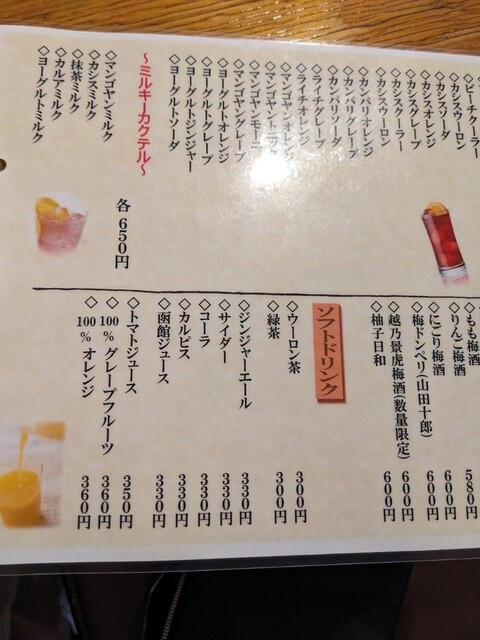 ◇ピーチクーラー
◇カシスウーロン
◇カシスソーダ
◇カシスオレンジ
◇カシスグレープ
◇カシスクーラー
◇カシスウーロン
◇カンパリオレンジ
◇カンパリグレープ
◇カンパリソーダ
◇ライチグレープ
◇ライチオレンジ
◇マンゴヤンオレンジ
◇マンゴヤントニック
◇マンゴヤンモーニ
◇マンゴヤングレープ
◇ヨーグルトオレンジ
◇ヨーグルトグレープ
◇ヨーグルトジンジャー
◇ヨーグルトソーダ
～ミルキーカクテル～
◇マンゴヤンミルク
◇カシスミルク
◇抹茶ミルク
◇カルアミルク
◇ヨーグルトミルク
各 650円
◇もも梅酒 580円
◇りんご梅酒 600円
◇にごり梅酒 600円
◇梅ドンペリ(山田十郎) 600円
◇越乃景虎梅酒(数量限定) 600円
◇柚子日和 600円
ソフトドリンク
◇ウーロン茶 300円
◇緑茶 300円
◇ジンジャーエール 330円
◇サイダー 330円
◇コーラ 330円
◇カルピス 330円
◇函館ジュース 330円
◇トマトジュース 350円
◇100% グレープフルーツ 360円
◇100% オレンジ 360円